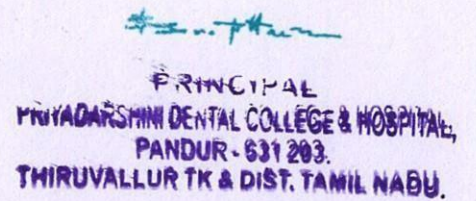 PRINCIPAL
PRIYADARSHINI DENTAL COLLEGE & HOSPITAL,
PANDUR - 631 203.
THIRUVALLUR TK & DIST. TAMIL NADU.